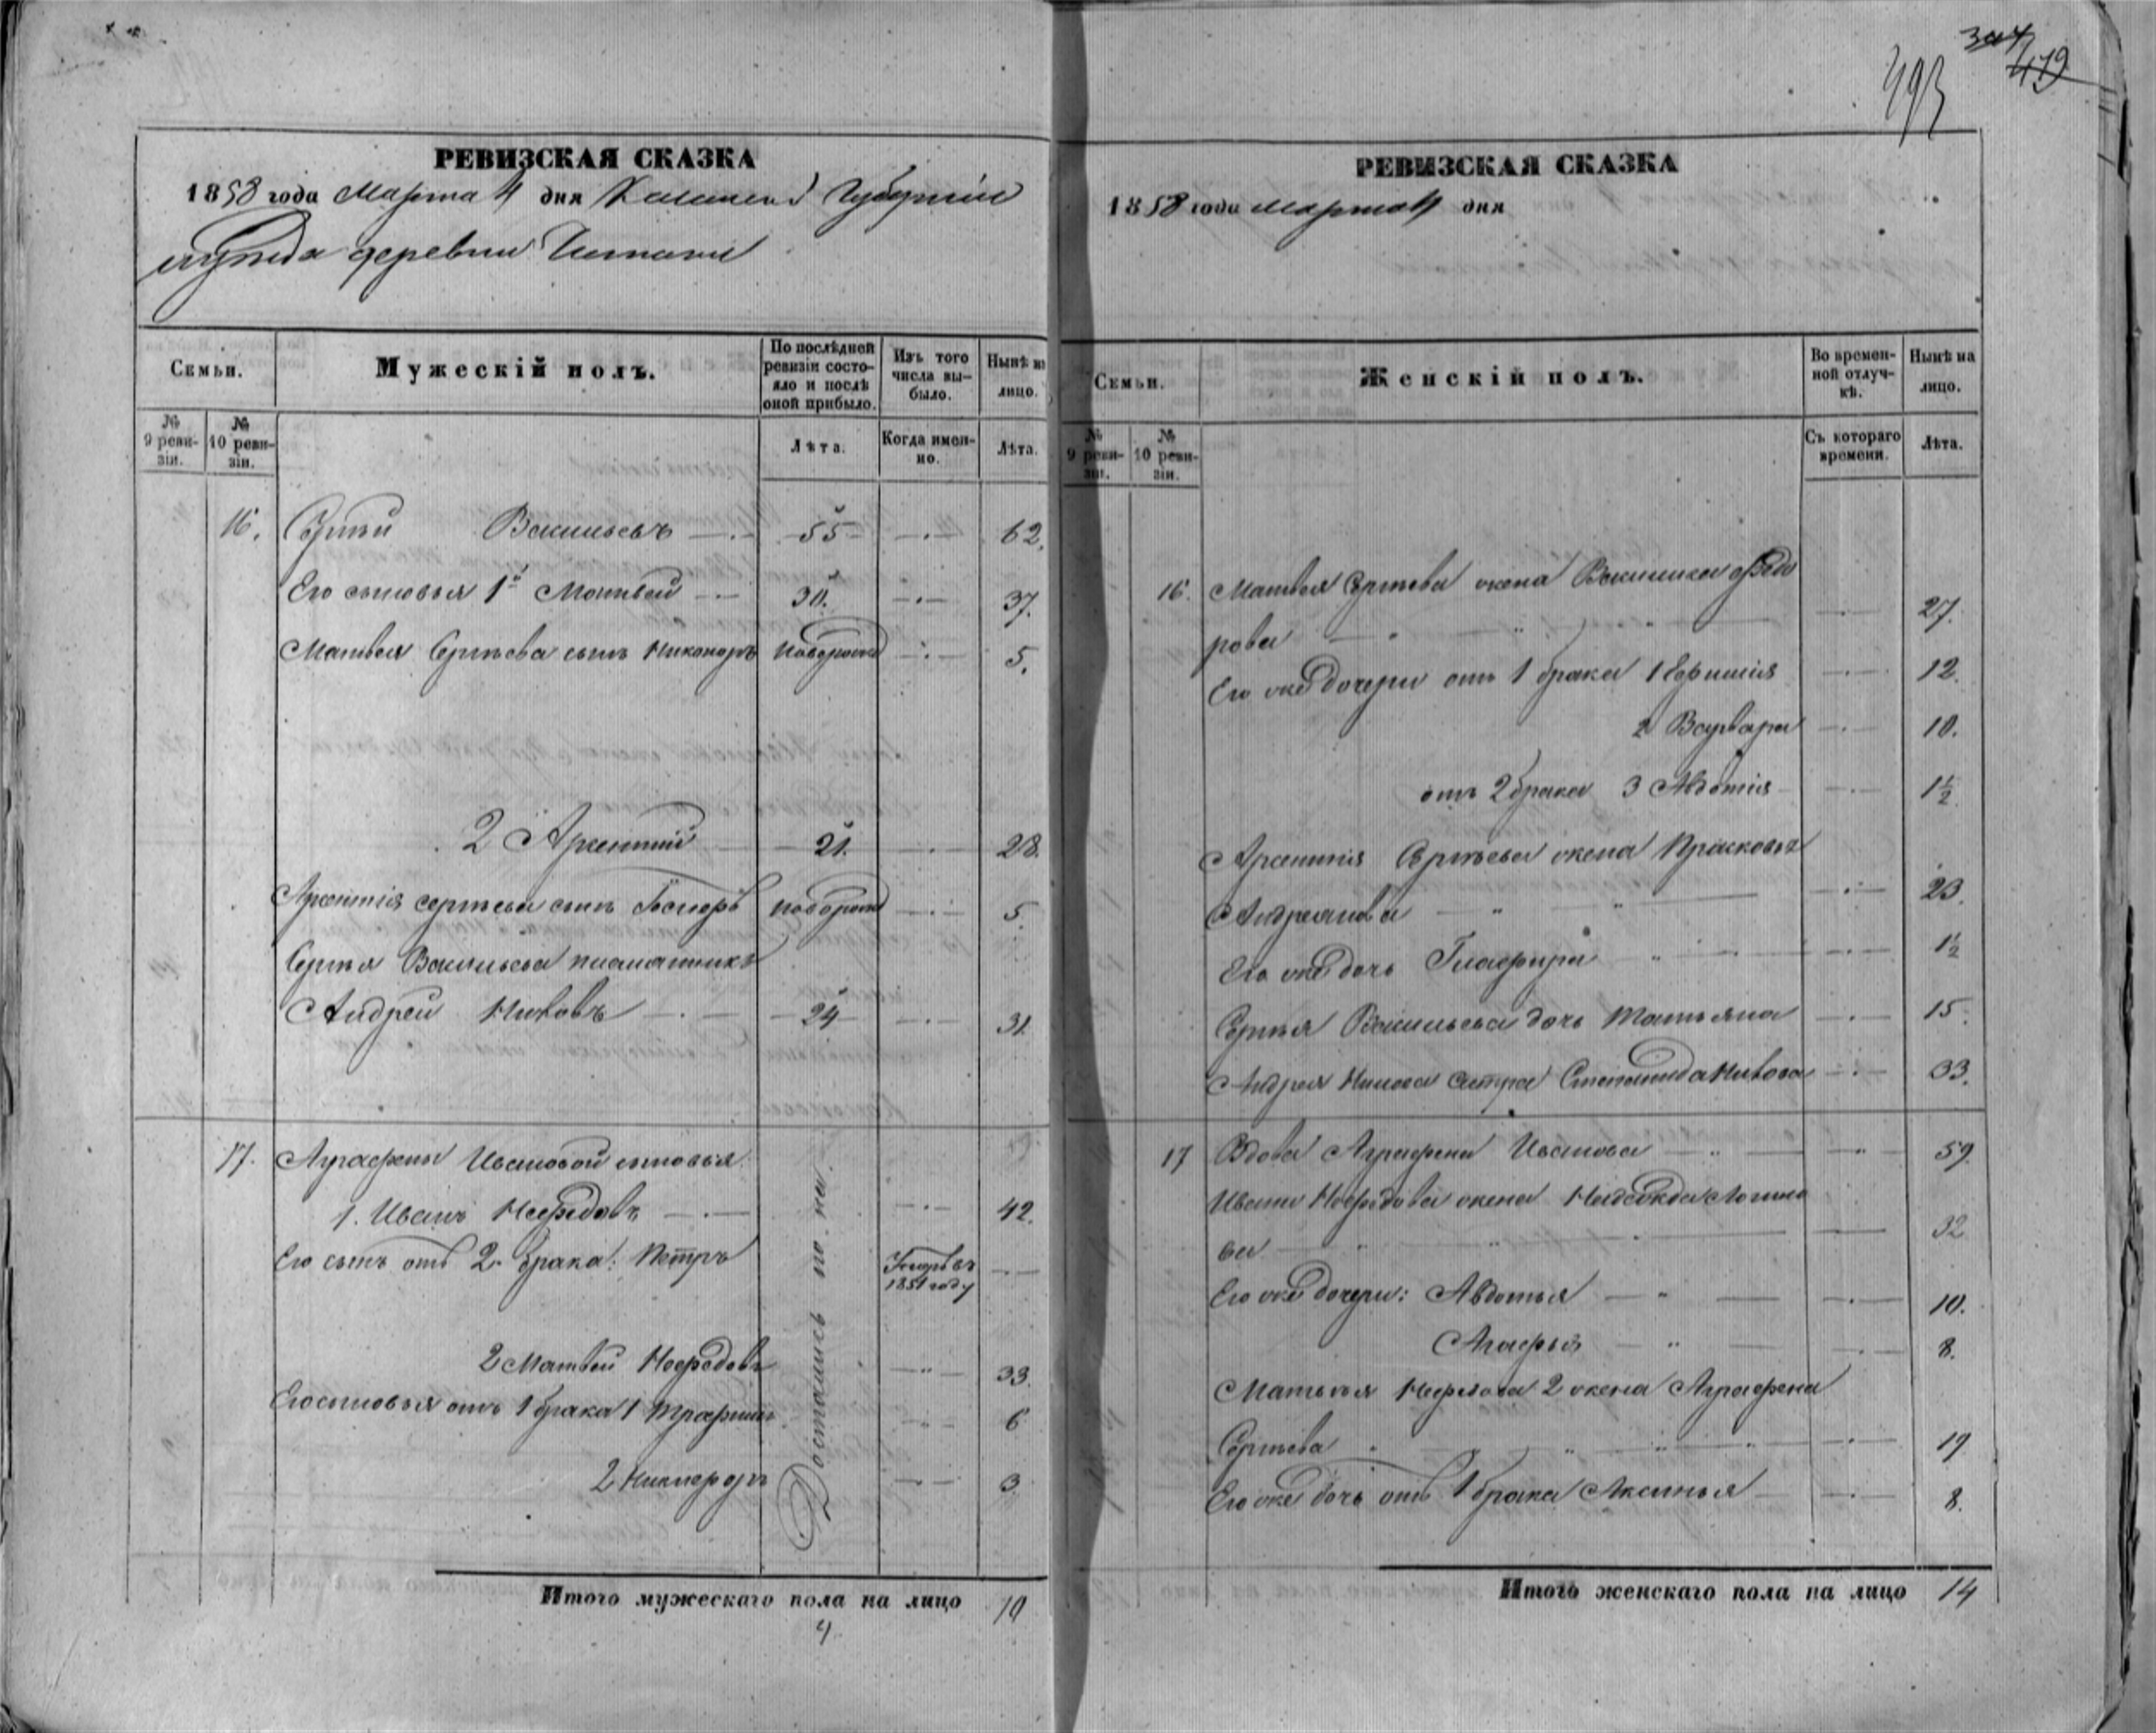 493
479
РЕВИЗСКАЯ СКАЗКА
1858 года Марта 4 дня губернии
уезда деревни
Семьи.
Мужескій полъ.
По послѣдней ревизіи состояло и послѣ оной прибыло.
Изъ того числа выбыло.
Нынѣ на лицо.
№ 9 ревизіи.
№ 10 ревизіи.
Лѣта.
Когда именно.
Лѣта.
16. Сергѣй Васильевъ 55 62.
Его сыновья 1й Матвѣй 30. 37.
Матвея Сергѣева сынъ Никоноръ новорожд 5.
2 Арсентий 21. 28.
Арсентія Сергѣева сынъ новорожд 5.
Сергѣя Васильева племянникъ
Андрей 24 31.
17. Аграфены Ивановой сыновья
1. Иванъ Нефедовъ 42.
Его сынъ отъ 2. брака: Петръ Умеръ въ 1851 году
2 Матвѣй Нефедовъ 33.
Его сыновья отъ 1 брака 1 6
2 Никифоръ 3
Достались по на
Итого мужескаго пола на лицо 10
4
РЕВИЗСКАЯ СКАЗКА
1858 года марта 4 дня
Семьи.
Женскій полъ.
Во временной отлучкѣ.
Нынѣ на лицо.
№ 9 ревизіи.
№ 10 ревизіи.
Съ котораго времени.
Лѣта.
16. Матвея Сергѣева жена Василиса Федо
рова 27.
Его же дочери отъ 1 брака 1 12.
2 Варвара 10.
отъ 2 брака 3 Авдотія 1½
Арсентія Сергѣева жена Прасковья
Андреанова 23.
Его же дочь Глафира 1½
Сергѣя Васильева дочь Татьяна 15.
Андрея сестра Степанида 33.
17 Вдова Аграфена Иванова 59.
Ивана Нефедова жена Надежда Логино
ва 32
Его же дочери: Авдотья 10.
Агафья 8.
Матвѣя Нефедова 2 жена Аграфена
Сергѣева 19
Его же дочь отъ 1 брака Аксинья 8.
Итого женскаго пола на лицо 14